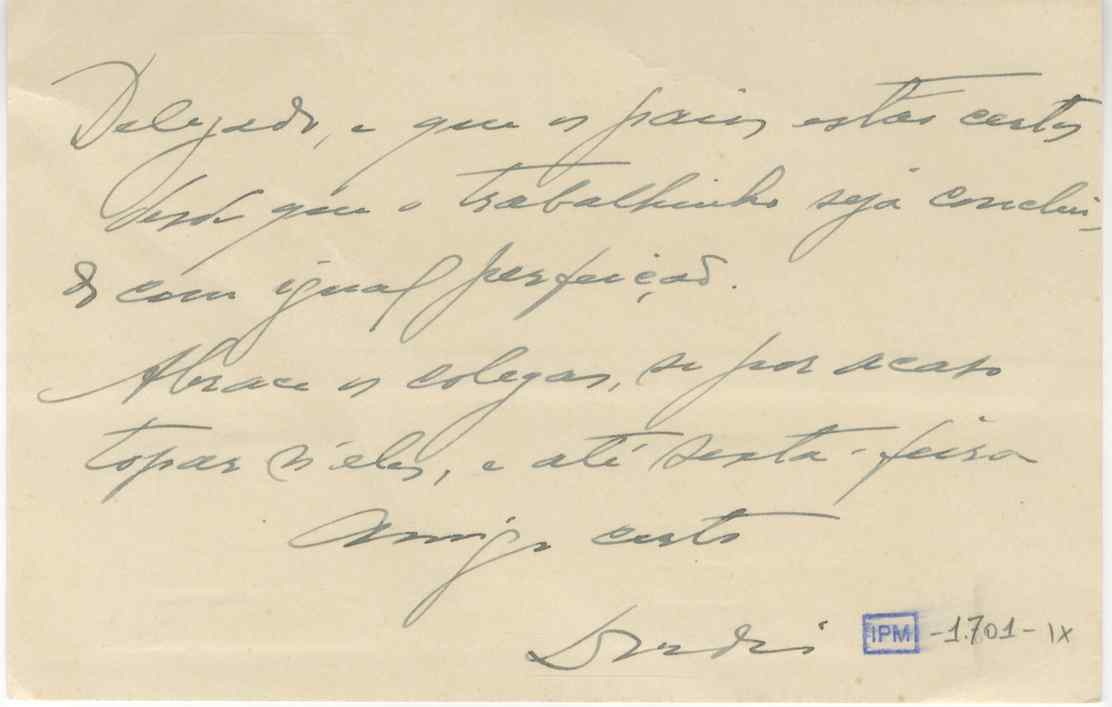 Delgado, e que os pains estão certos
desde que o trabalhinho seja conclui-
do com igual perfeição.
Abrace os colegas, se por acaso
topar n'eles, e até sexta-feira
Amigo certo
IPM -1.701-IX